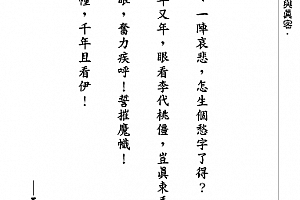 與真密．
、一陣哀悲，怎生個愁字了得？
年又年，眼看李代桃僵，豈真束手
眼，奮力疾呼！誓摧魔幟！
幢，千年且看伊！
——